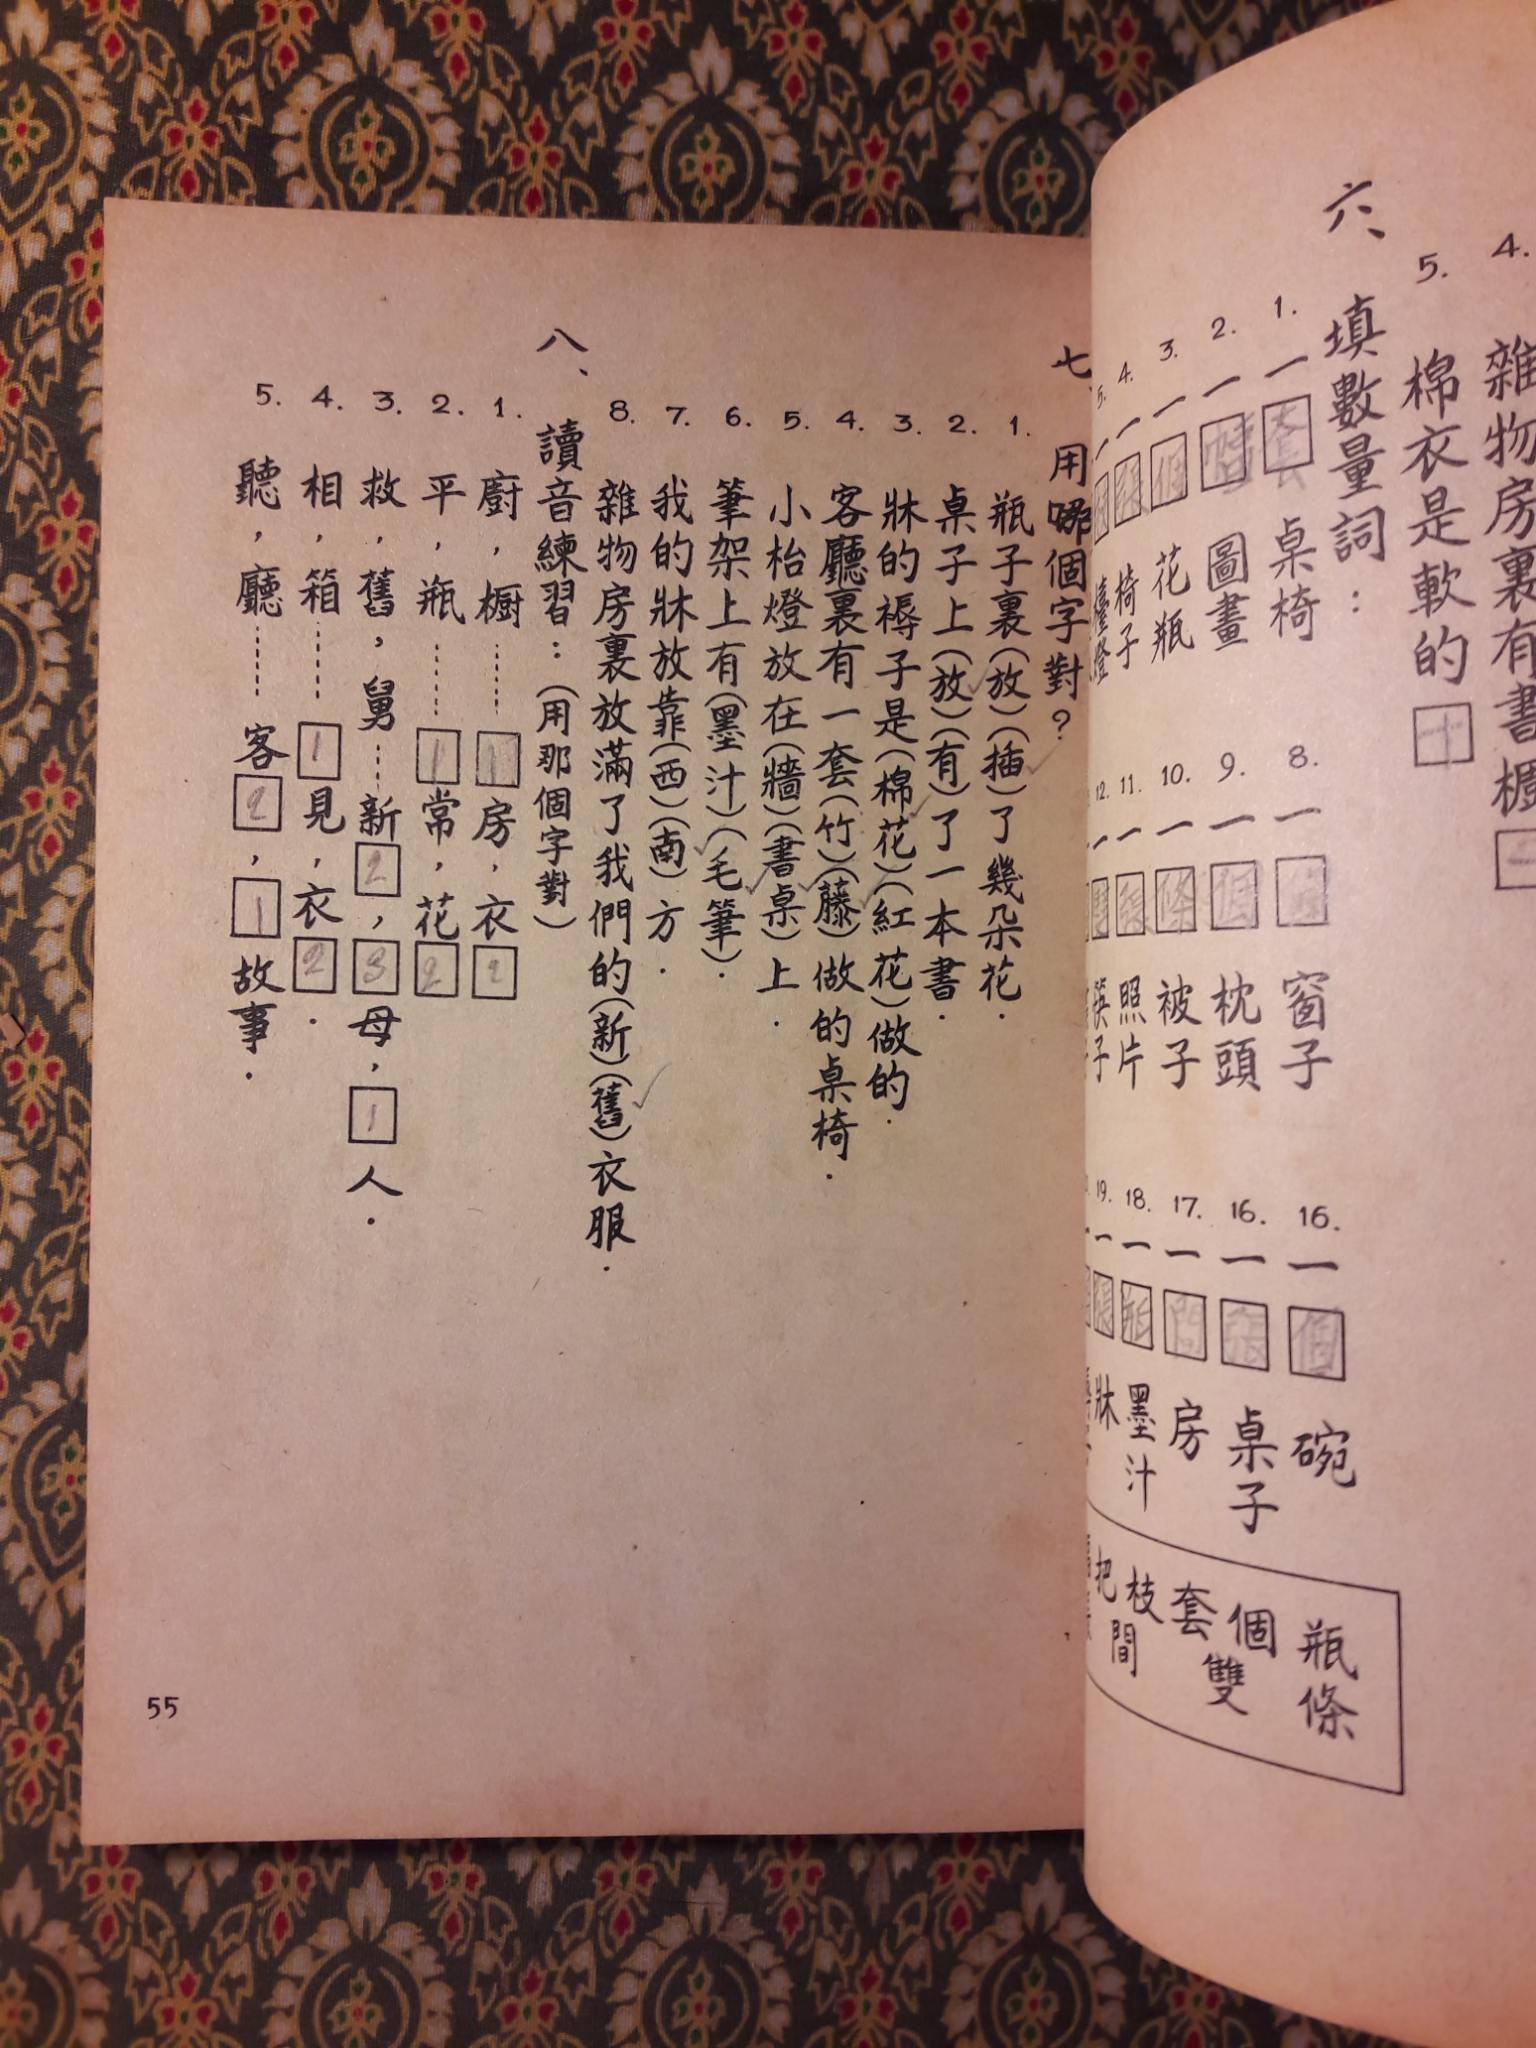 4. 雜物房裏有書櫥
5. 棉衣是軟的 十
六、填數量詞：
1. 一套桌椅
2. 一 圖畫
3. 一個花瓶
4. 一張椅子
5. 一
8. 一 窗子
9. 一個枕頭
10. 一條被子
11. 一張照片
12. 一雙筷子
16. 一個碗
16. 一張桌子
17. 一間房
18. 一瓶墨汁
19. 一張牀
瓶 個 套 枝 把
條 雙 間
七、用哪個字對？
1. 瓶子裏(放)(插)了幾朵花．
2. 桌子上(放)(有)了一本書．
3. 牀的褥子是(棉花)(紅花)做的．
4. 客廳裏有一套(竹)(藤)做的桌椅．
5. 小枱燈放在(牆)(書桌)上．
6. 筆架上有(墨汁)(毛筆)．
7. 我的牀放靠(西)(南)方．
8. 雜物房裏放滿了我們的(新)(舊)衣服．
八、讀音練習：(用那個字對)
1. 廚，櫥……1房，衣2
2. 平，瓶……1常，花2
3. 救，舊，舅……新2，3母，1人．
4. 相，箱……1見，衣2．
5. 聽，廳……客2，1故事．
55